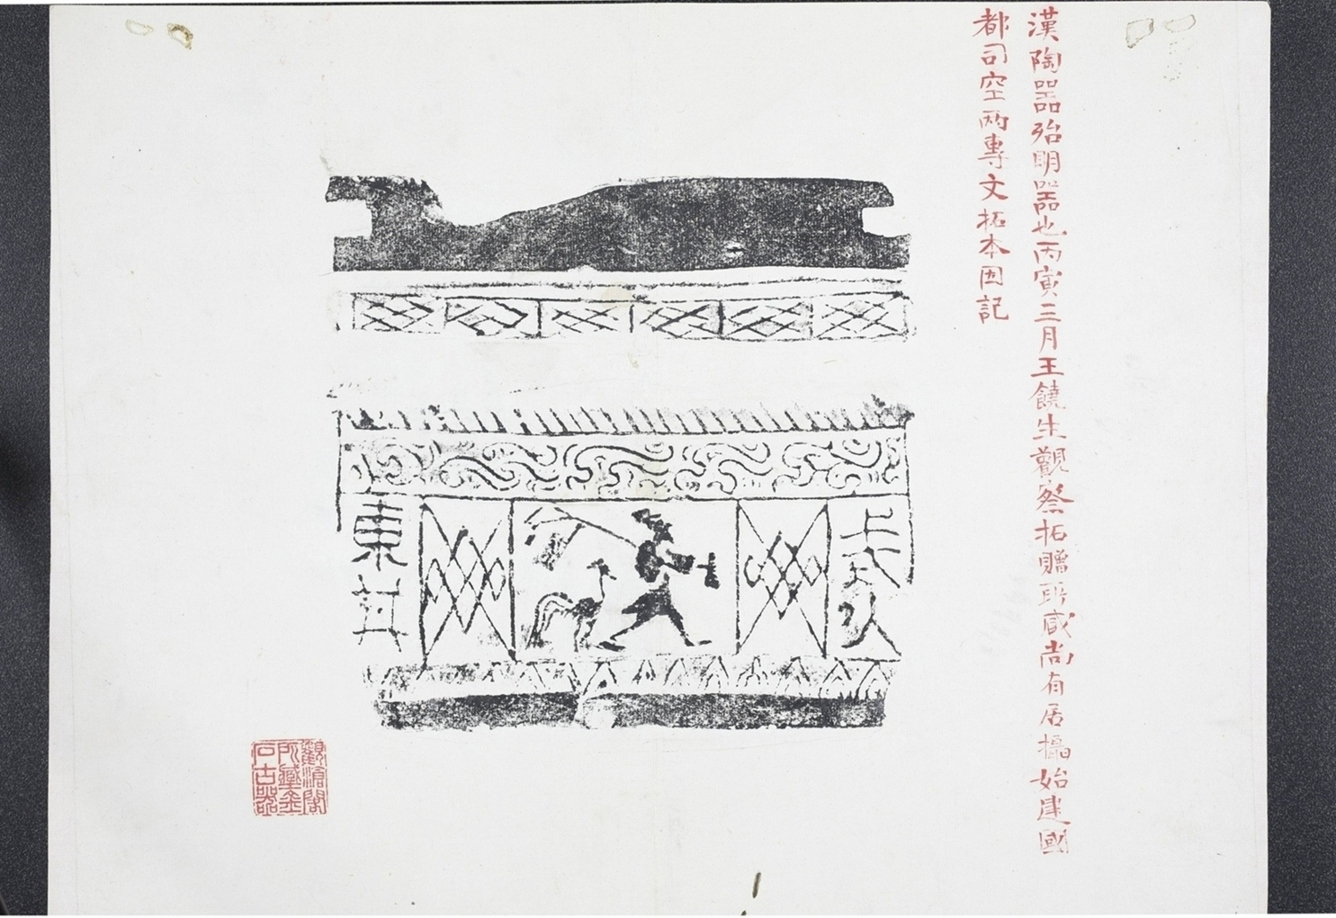 漢陶器殆明器也丙寅三月王饒生觀察拓贈所臧尚有居攝始建國
都司空兩專文拓本因記
東井
觀滄閣
所藏金
石古器